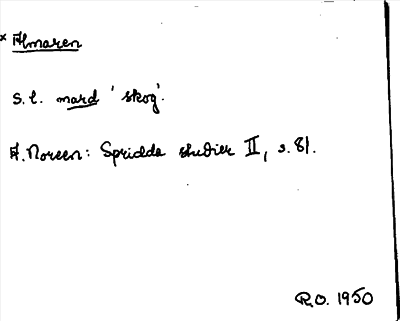 × Almaren
s. l. mard 'skog'.
A. Noreen: Spridda studier II, s. 81.
R.O. 1950